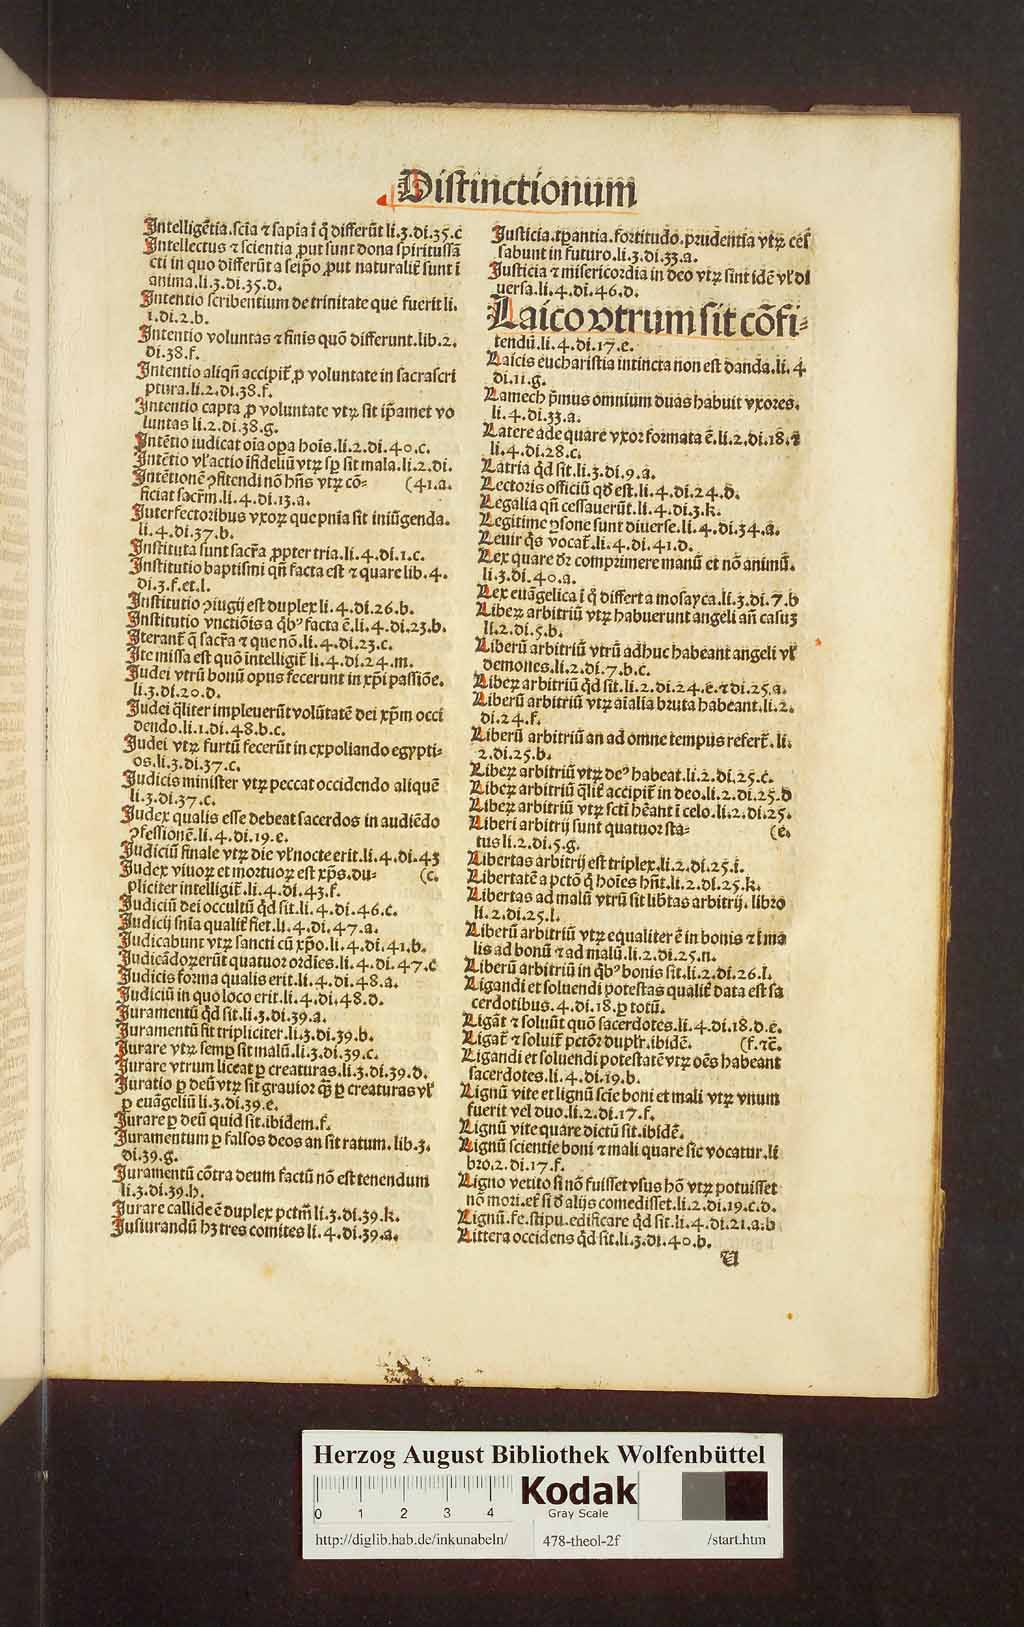 Distinctionum
Intelligẽtia.scĩa ⁊ sapĩa ĩ q̃ differũt li.3.di.35.c
Intellectus ⁊ scientia ꝓut sunt dona spiritussã
cti in quo differũt a seip̃o ꝓut naturalit̃ sunt ĩ
anima.li.3.di.35.d.
Intentio scribentium de trinitate que fuerit li.
1.di.2.b.
Intentio voluntas ⁊ finis quõ differunt.lib.2.
di.38.f.
Intentio aliqñ accipit̃ ꝓ voluntate in sacra scri
ptura.li.2.di.38.f.
Intentio capta ꝓ voluntate vtꝝ sit ip̃amet vo
luntas li.2.di.38.g.
Intẽtio iudicat oĩa oꝑa hoĩs.li.2.di.40.c.
Intẽtio vl̃ actio ĩfideliũ vtꝝ sꝑ sit mala.li.2.di.
Intẽtionẽ ꝯfitendi nõ hñs vtꝝ cõ= (41.a.
ficiat sacr̃m.li.4.di.13.a.
Interfectoribus vxoꝝ que pnĩa sit iniũgenda.
li.4.di.37.b.
Instituta sunt sacr̃a ꝓpter tria.li.4.di.1.c.
Institutio baptismi qñ facta est ⁊ quare lib.4.
di.3.f.et.l.
Institutio ꝯiugij est duplex li.4.di.26.b.
Institutio vnctiõis a q̃bꝰ facta ẽ.li.4.di.23.b.
Iterant̃ q̃ sacr̃a ⁊ que nõ.li.4.di.23.c.
Ite missa est quõ intelligit̃ li.4.di.24.m.
Judei vtrũ bonũ opus fecerunt in xp̃i passiõe.
li.3.di.20.d.
Judei q̃liter impleuerũt volũtatẽ dei xp̃m occi
dendo.li.1.di.48.b.c.
Judei vtꝝ furtũ fecerũt in expoliando egypti=
os.li.3.di.37.c.
Judicis minister vtꝝ peccat occidendo aliquẽ
li.3.di.37.c.
Judex qualis esse debeat sacerdos in audiẽdo
ꝯfessionẽ.li.4.di.19.e.
Judiciũ finale vtꝝ die vl̃ nocte erit.li.4.di.43
Judex viuoꝝ et mortuoꝝ est xp̃s.du= (c.
pliciter intelligit̃.li.4.di.43.f.
Judiciũ dei occultũ q̃d sit.li.4.di.46.c.
Judicij snĩa qualit̃ fiet.li.4.di.47.a.
Judicabunt vtꝝ sancti cũ xp̃o.li.4.di.41.b.
Judicãdoꝝ erũt quatuor ordĩes.li.4.di.47.c
Judicis forma qualis erit.li.4.di.48.a.
Judiciũ in quo loco erit.li.4.di.48.d.
Juramentũ q̃d sit.li.3.di.39.a.
Juramentũ fit tripliciter.li.3.di.39.b.
Jurare vtꝝ semꝑ sit malũ.li.3.di.39.c.
Jurare vtrum liceat ꝑ creaturas.li.3.di.39.d.
Juratio ꝑ deũ vtꝝ sit grauior q̃ꝫ ꝑ creaturas vl̃
ꝑ euãgeliũ li.3.di.39.e.
Jurare ꝑ deũ quid sit.ibidem.f.
Juramentum ꝑ falsos deos an sit ratum.lib.3.
di.39.g.
Juramentũ cõtra deum factũ nõ est tenendum
li.3.di.39.h.
Jurare callide ẽ duplex pctm̃ li.3.di.39.k.
Jusiurandũ hꝫ tres comites li.4.di.39.a.
Justicia.tꝑantia.fortitudo.prudentia vtꝝ ces̃
sabunt in futuro.li.3.di.33.a.
Justicia ⁊ misericordia in deo vtꝝ sint idẽ vl̃ di
uersa.li.4.di.46.d.
Laico vtrum sit cõfi=
tendũ.li.4.di.17.e.
Laicis eucharistia intincta non est danda.li.4.
di.11.g.
Lamech p̃mus omnium duas habuit vxores.
li.4.di.33.a.
Latere ade quare vxor formata ẽ.li.2.di.18.⁊
li.4.di.28.c.
Latria q̃d sit.li.3.di.9.a.
Lectoris officiũ qd̃ est.li.4.di.24.d.
Legalia qñ cessauerũt.li.4.di.3.k.
Legitime ꝑsone sunt diuerse.li.4.di.34.a.
Leuir q̃s vocat̃.li.4.di.41.d.
Lex quare dr̃ comprimere manũ et nõ animũ.
li.3.di.40.a.
Lex euãgelica ĩ q̃ differt a mosayca.li.3.di.7.b
Libeꝝ arbitriũ vtꝝ habuerunt angeli añ casuꝫ
li.2.di.5.b.
Liberũ arbitriũ vtrũ adhuc habeant angeli vl̃
demones.li.2.di.7.b.c.
Libeꝝ arbitriũ q̃d sit.li.2.di.24.e.⁊ di.25.a.
Liberũ arbitriũ vtꝝ aĩalia bruta habeant.li.2.
di.24.f.
Liberũ arbitriũ an ad omne tempus refert̃.li.
2.di.25.b.
Libeꝝ arbitriũ vtꝝ deꝰ habeat.li.2.di.25.c.
Libeꝝ arbitriũ q̃lit̃ accipit̃ in deo.li.2.di.25.d
Libeꝝ arbitriũ vtꝝ scti hẽant ĩ celo.li.2.di.25.
Liberi arbitrij sunt quatuor sta= (e.
tus li.2.di.5.g.
Libertas arbitrij est triplex.li.2.di.25.i.
Libertatẽ a pctõ q̃ hoĩes hñt.li.2.di.25.k.
Libertas ad malũ vtrũ sit lib̃tas arbitrij.libro
li.2.di.25.l.
Liberũ arbitriũ vtꝝ equaliter ẽ in bonis ⁊ ĩ ma
lis ad bonũ ⁊ ad malũ.li.2.di.25.n.
Liberũ arbitriũ in q̃bꝰ bonis sit.li.2.di.26.l.
Ligandi et soluendi potestas qualit̃ data est sa
cerdotibus.4.di.18.ꝑ totũ.
Ligãt ⁊ soluũt quõ sacerdotes.li.4.di.18.d.e.
Ligat̃ ⁊ soluit̃ pctõr dupl̃r.ibidẽ. (f.⁊c̃.
Ligandi et soluendi potestatẽ vtꝝ oẽs habeant
sacerdotes.li.4.di.19.b.
Lignũ vite et lignũ scĩe boni et mali vtꝝ vnum
fuerit vel duo.li.2.di.17.f.
Lignũ vite quare dictũ sit.ibidẽ.
Lignũ scientie boni ⁊ mali quare sic vocatur.li
bro.2.di.17.f.
Ligno vetito si nõ fuisset vsus hõ vtꝝ potuisset
nõ mori.et̃ si d̃ alijs comedisset.li.2.di.19.c.d.
Lignũ.fe.stipu.edificare q̃d sit.li.4.di.21.a.b
Littera occidens q̃d sit.li.3.di.40.b.
U
Herzog August Bibliothek Wolfenbüttel
0 1 2 3 4
Kodak
Gray Scale
http://diglib.hab.de/inkunabeln/ 478-theol-2f /start.htm